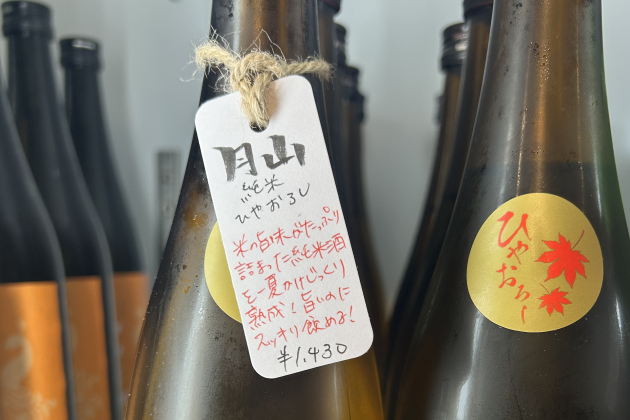 月山
純米
ひやおろし
米の旨味がたっぷり
詰まった純米酒
を一夏かけじっくり
熟成！旨いのに
スッキリ飲める！
¥1,430
ひや
おろし